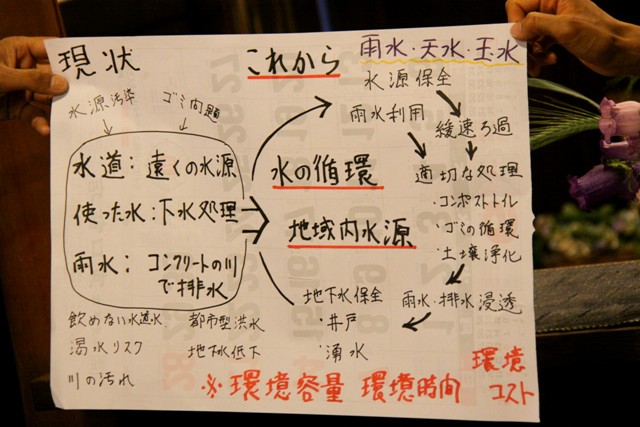 現状
これから
雨水・天水・玉水
水源汚染
ゴミ問題
水道：遠くの水源
使った水：下水処理
雨水：コンクリートの川
で排水
飲めない水道水
都市型洪水
渇水リスク
地下水低下
川の汚れ
水の循環
地域内水源
水源保全
雨水利用
緩速ろ過
適切な処理
・コンポストトイレ
・ゴミの循環
・土壌浄化
雨水・排水浸透
地下水保全
・井戸
・湧水
※環境容量 環境時間
環境
コスト